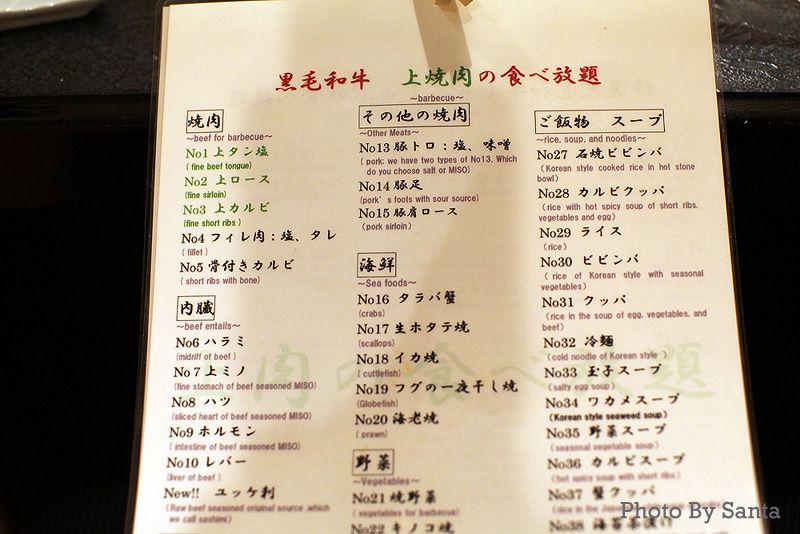 黒毛和牛 上焼肉の食べ放題
焼肉
～beef for barbecue～
No1 上タン塩
(fine beef tongue)
No2 上ロース
(fine sirloin)
No3 上カルビ
(fine short ribs )
No4 フィレ肉：塩、タレ
(fillet )
No5 骨付きカルビ
( short ribs with bone)
内臓
～beef entails～
No6 ハラミ
(midriff of beef )
No7 上ミノ
(fine stomach of beef seasoned MISO)
No8 ハツ
(sliced heart of beef seasoned MISO)
No9 ホルモン
( intestine of beef seasoned MISO)
No10 レバー
(liver of beef )
New!! ユッケ刺
(Raw beef seasoned original source ,which
we call sashimi)
～barbecue～
その他の焼肉
～Other Meats～
No13 豚トロ：塩、味噌
( pork: we have two types of No13. Which
do you choose salt or MISO)
No14 豚足
(pork's foots with sour source)
No15 豚肩ロース
(pork sirloin)
海鮮
～Sea foods～
No16 タラバ蟹
(crabs)
No17 生ホタテ焼
(scallops)
No18 イカ焼
(cuttlefish)
No19 フグの一夜干し焼
(Globefish)
No20 海老焼
( prawn)
野菜
～Vegetables～
No21 焼野菜
(vegetables for barbecue)
No22 キノコ焼
ご飯物 スープ
～rice, soup, and noodles～
No27 石焼ビビンバ
(Korean style cooked rice in hot stone
bowl)
No28 カルビクッパ
(rice with hot spicy soup of short ribs,
vegetables and egg)
No29 ライス
(rice)
No30 ビビンバ
( rice of Korean style with seasonal
vegetables)
No31 クッパ
(rice in the soup of egg, vegetables, and
beef)
No32 冷麺
(cold noodle of Korean style )
No33 玉子スープ
(salty egg soup)
No34 ワカメスープ
(Korean style seaweed soup)
No35 野菜スープ
(seasonal vegetable soup)
No36 カルビスープ
(hot spicy soup with short ribs )
No37 蟹クッパ
(rice in the
No38 海苔茶漬け
肉の食べ放題
Photo By Santa